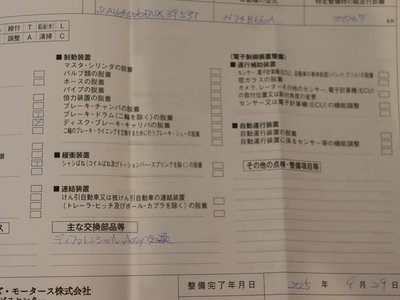 締付 T 給油(水) L
調整 A 清掃 C
km
■ 制動装置
マスタ・シリンダの脱着
バルブ類の脱着
ホースの脱着
パイプの脱着
倍力装置の脱着
ブレーキ・チャンバの脱着
ブレーキ・ドラム(二輪を除く)の脱着
ディスク・ブレーキ・キャリパの脱着
二輪のブレーキ・ライニングを交換するために行うブレーキ・シューの脱着
■ 緩衝装置
シャシばね(コイルばね及びトーションバー・スプリングを除く)の脱着
■ 連結装置
けん引自動車又は被けん引自動車の連結装置
(トレーラ・ヒッチ及びボール・カプラを除く)の脱着
主な交換部品等
ディファレンシャル Assy 交換
(電子制御装置整備)
■ 運行補助装置
窓ガラスの脱着
の取付位置又は取付角度の変更
センサー又は電子計算機(ECU)の機能調整
■ 自動運行装置
自動運行装置の脱着
自動運行装置に係るセンサー等の機能調整
その他の点検・整備項目等
ズ・モータース株式会社
整備完了年月日
2025 9 29
年 月 日